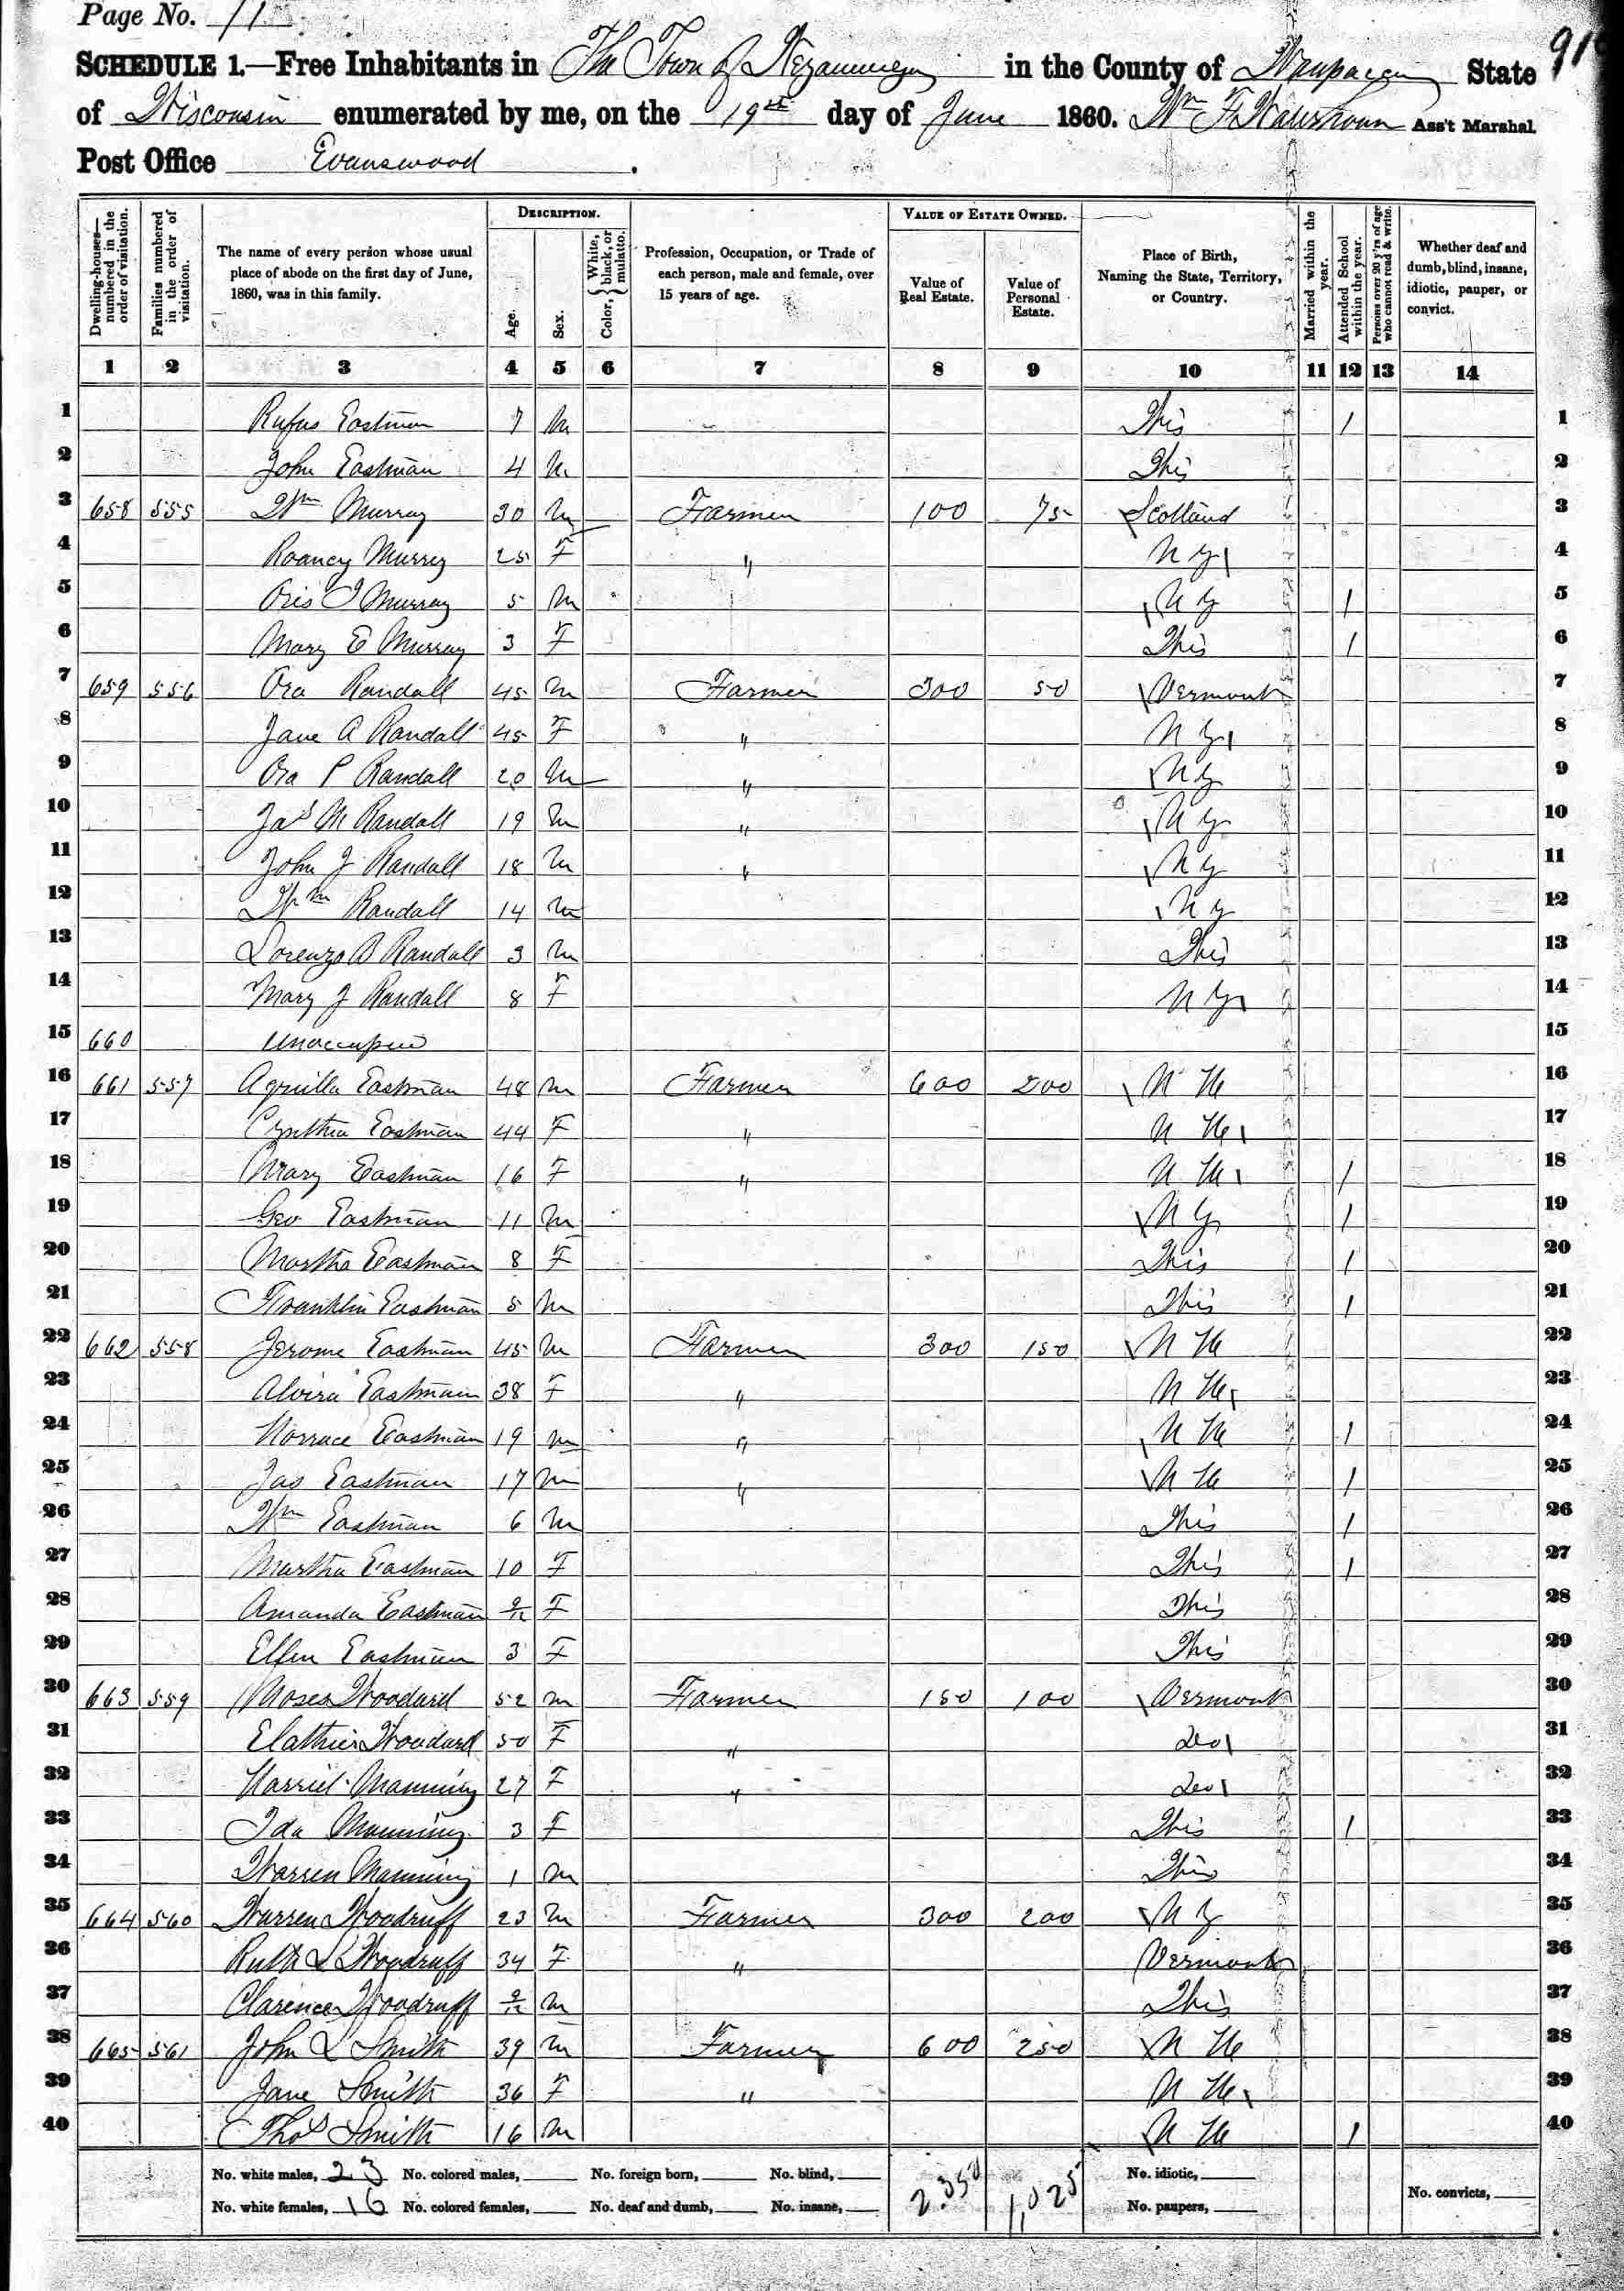 Page No. 11
SCHEDULE 1.—Free Inhabitants in The Town of in the County of Waupacca State
of Wisconsin enumerated by me, on the 19th day of June 1860. Wm F Ass't Marshal.
Post Office Evanswood.
DESCRIPTION. VALUE OF ESTATE OWNED.
Dwelling-houses—numbered in the order of visitation. Families numbered in the order of visitation. The name of every person whose usual place of abode on the first day of June, 1860, was in this family. Age. Sex. Color, White, black, or mulatto. Profession, Occupation, or Trade of each person, male and female, over 15 years of age. Value of Real Estate. Value of Personal Estate. Place of Birth, Naming the State, Territory, or Country. Married within the year. Attended School within the year. Persons over 20 y'rs of age who cannot read & write. Whether deaf and dumb, blind, insane, idiotic, pauper, or convict.
1 2 3 4 5 6 7 8 9 10 11 12 13 14
1 Rufus Eastman 7 M This 1 1
2 John Eastman 4 M This 2
3 658 555 Wm Murray 30 M Farmer 100 75 Scotland 3
4 Roancy Murrey 25 F " N Y 4
5 Oris J Murray 5 M N Y 1 5
6 Mary E Murray 3 F This 1 6
7 659 556 Ora Randall 45 M Farmer 300 50 Vermont 7
8 Jane A Randall 45 F " N Y 8
9 Ora P Randall 20 M " N Y 9
10 Jas M Randall 19 M " N Y 10
11 John J Randall 18 M " N Y 11
12 Wm Randall 14 M N Y 12
13 Lorenzo B Randall 3 M This 13
14 Mary J Randall 8 F N Y 14
15 660 Unoccupied 15
16 661 557 Aquilla Eastman 48 M Farmer 600 200 N H 16
17 Cynthia Eastman 44 F " N H 17
18 Mary Eastman 16 F " N H 1 18
19 Geo Eastman 11 M N Y 1 19
20 Martha Eastman 8 F This 1 20
21 Franklin Eastman 5 M This 1 21
22 662 558 Jerome Eastman 45 M Farmer 300 150 N H 22
23 Alvira Eastman 38 F " N H 23
24 Horrace Eastman 19 M " N H 1 24
25 Jas Eastman 17 M " N H 1 25
26 Wm Eastman 6 M This 1 26
27 Martha Eastman 10 F This 1 27
28 Amanda Eastman 9/12 F This 28
29 Ellen Eastman 3 F This 29
30 663 559 Moses Woodard 52 M Farmer 150 100 Vermont 30
31 Woodard 50 F " Do 31
32 Harriet Manning 27 F " Do 32
33 Ida Manning 3 F This 1 33
34 Warren Manning 1 M This 34
35 664 560 Warren Woodruff 23 M Farmer 300 200 N Y 35
36 Ruth L Woodruff 34 F " Vermont 36
37 Clarence Woodruff 9/12 M This 37
38 665 561 John L Smith 39 M Farmer 600 250 N H 38
39 Jane Smith 36 F " N H 39
40 Thos Smith 16 M N H 1 40
No. white males, 23 No. colored males, No. foreign born, No. blind, 2.350 1,025 No. idiotic,
No. white females, 16 No. colored females, No. deaf and dumb, No. insane, No. paupers, No. convicts,